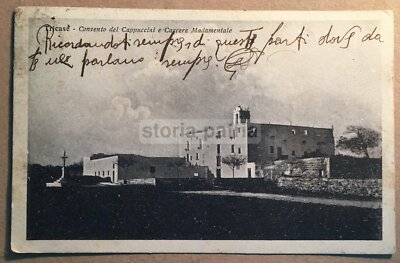 Tricase - Convento dei Cappuccini e Carcere Madamentale
Ricordandoti sempre di questi parti dove da
te parlano sempre
storia-patria